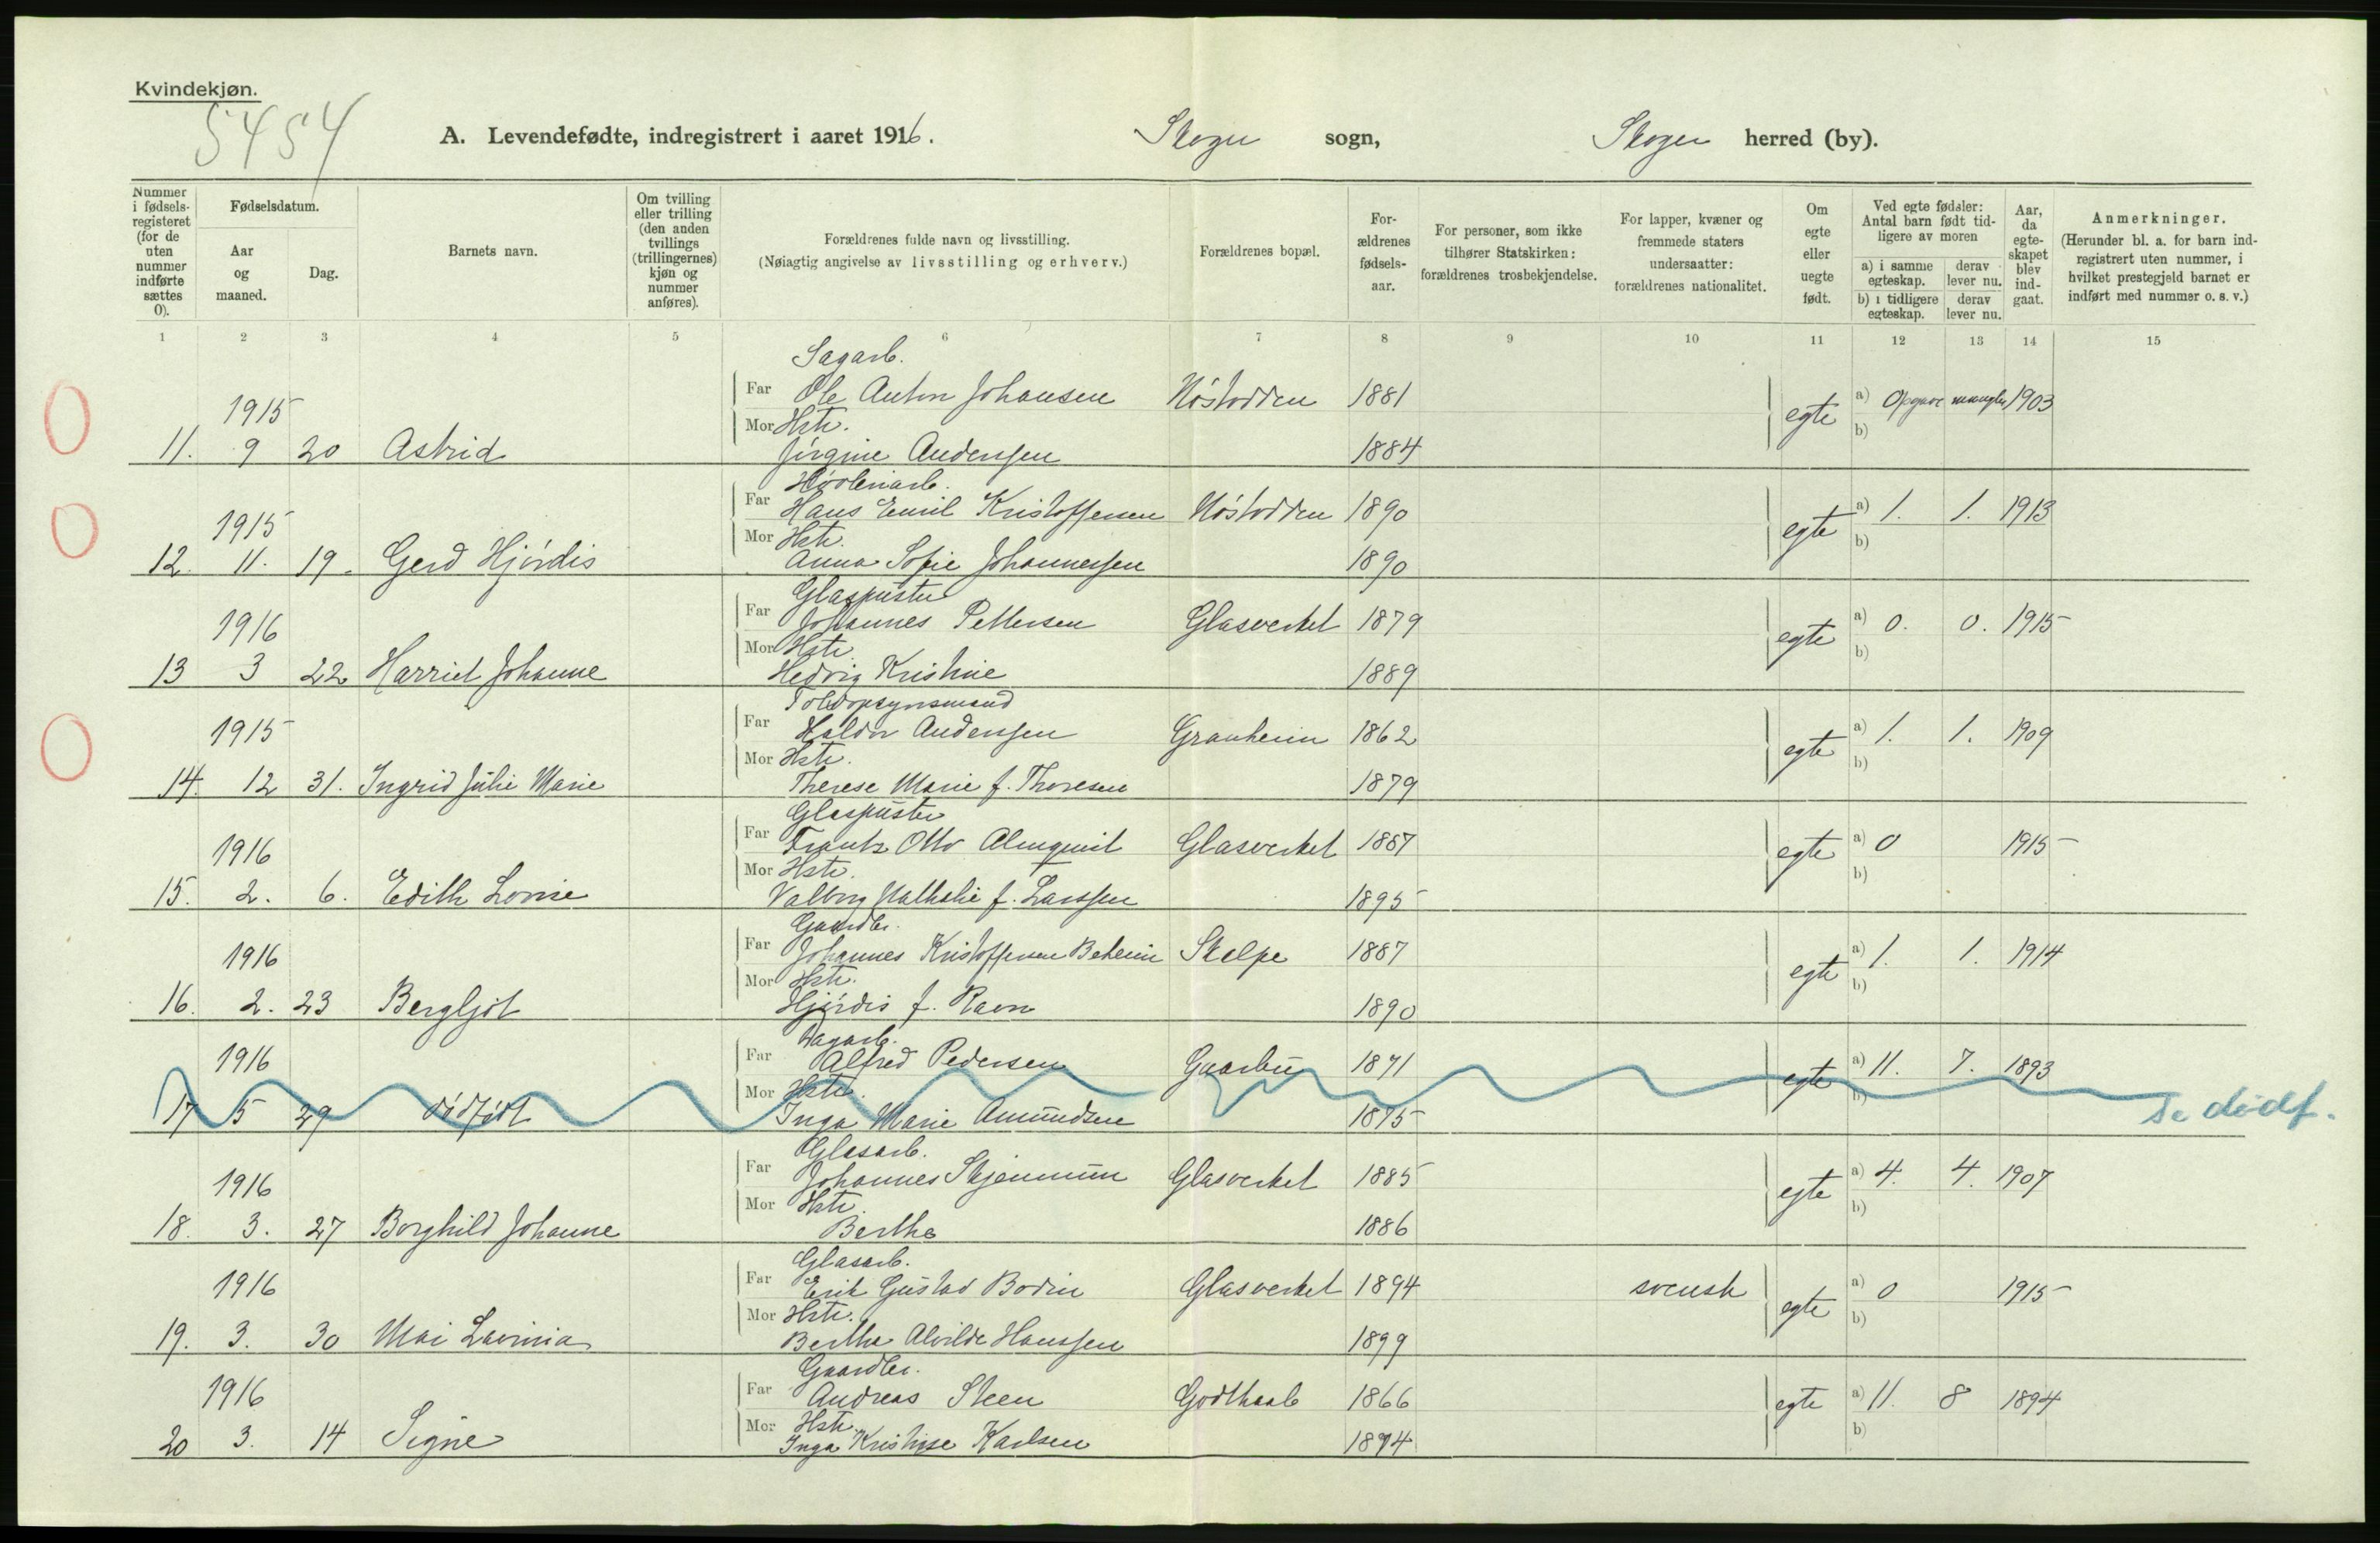 Kvindekjøn.
5454
A. Levendefødte, indregistrert i aaret 1916. Skoger sogn, Skoger herred (by).
Nummer i fødselsregisteret (for de uten nummer indførte sættes 0).
Fødselsdatum.
Aar og maaned.
Dag.
Barnets navn.
Om tvilling eller trilling (den anden tvillings (trillingernes) kjøn og nummer anføres).
Forældrenes fulde navn og livsstilling.
(Nøiagtig angivelse av livsstilling og erhverv.)
Forældrenes bopæl.
Forældrenes fødselsaar.
For personer, som ikke tilhører Statskirken: forældrenes trosbekjendelse.
For lapper, kvæner og fremmede staters undersaatter: forældrenes nationalitet.
Om egte eller uegte født.
Ved egte fødsler: Antal barn født tidligere av moren
a) i samme egteskap.
derav lever nu.
b) i tidligere egteskap.
derav lever nu.
Aar, da egteskapet blev indgaat.
Anmerkninger.
(Herunder bl. a. for barn indregistrert uten nummer, i hvilket prestegjeld barnet er indført med nummer o. s. v.)
1 2 3 4 5 6 7 8 9 10 11 12 13 14 15
Sagarb.
1915 Far Ole Anton Johansen Nøstodden 1881 egte a) Opgave mangler 1903
Mor Hstr. b)
11. 9 20 Astrid Jørgine Anderssen 1884
Høvleriarb.
1915 Far Hans Emil Kristoffersen Nøstodden 1890 egte a) 1. 1. 1913
Mor Hstr. b)
12. 11. 19. Gerd Hjørdis Anna Sofie Johannessen 1890
Glaspuster
1916 Far Johannes Pettersen Glasverket 1879 egte a) 0. 0. 1915
Mor Hstr. b)
13 3 22 Harriet Johanne Hedvig Kristine 1889
Toldopsynsmand
1915 Far Haldor Anderssen Granheim 1862 egte a) 1. 1. 1909
Mor Hstr. b)
14. 12 31. Ingrid Julie Marie Therese Marie f. Thoresen 1879
Glaspuster
1916 Far Frantz Otto Almquist Glasverket 1887 egte a) 0 1915
Mor Hstr. b)
15. 2. 6. Edith Lovise Valborg Nathalie f. Larssen 1895
Gaardbr.
1916 Far Johannes Kristoffersen Beheim Skelpe 1887 egte a) 1. 1. 1914
Mor Hstr. b)
16. 2. 23 Bergljot Hjørdis f. Ravn 1890
Dagarb.
1916 Far Alfred Pedersen Gaarbu 1871 egte a) 11. 7. 1893
Mor Hstr. b)
17 5 29 dødfødt Inga Marie Amundsen 1875 se dødf.
Glasarb.
1916 Far Johannes Skjennum Glasverket 1885 egte a) 4. 4. 1907
Mor Hstr. b)
18. 3. 27 Borghild Johanne Berthe 1886
Glasarb.
1916 Far Erik Gustav Bodin Glasverket 1894 svensk egte a) 0 1915
Mor Hstr. b)
19. 3. 30 Mai Lavinia Berthe Alvilde Hanssen 1899
Gaardbr.
1916 Far Andreas Steen Godthaab 1866 egte a) 11. 8 1894
Mor Hstr. b)
20 3. 14 Signe Inga Kristine Karlsen 1874